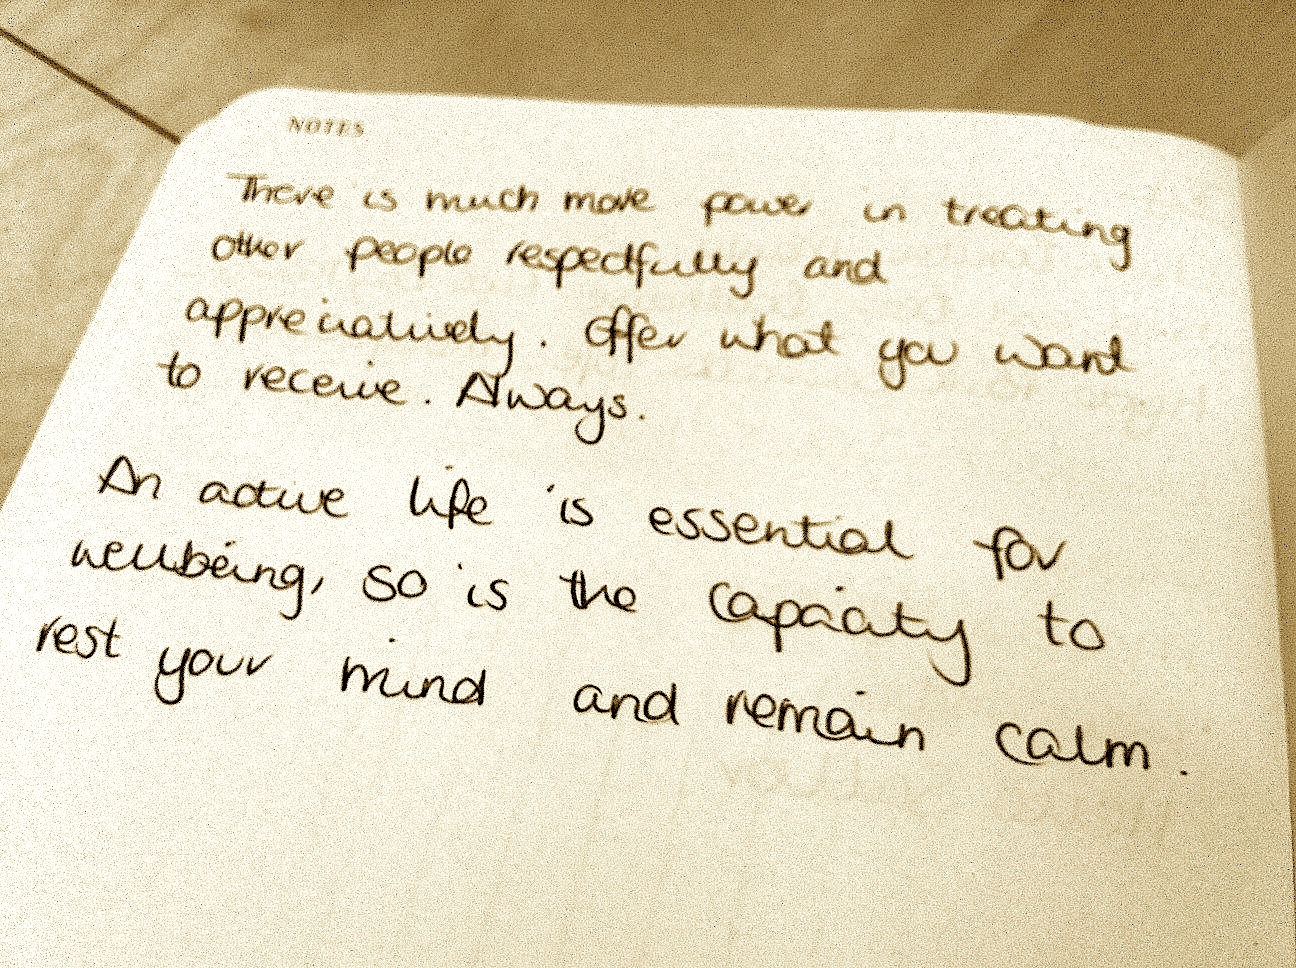 NOTES
There is much more power in treating
other people respectfully and
appreciatively. Offer what you want
to receive. Always.
An active life is essential for
wellbeing, so is the capacity to
rest your mind and remain calm.